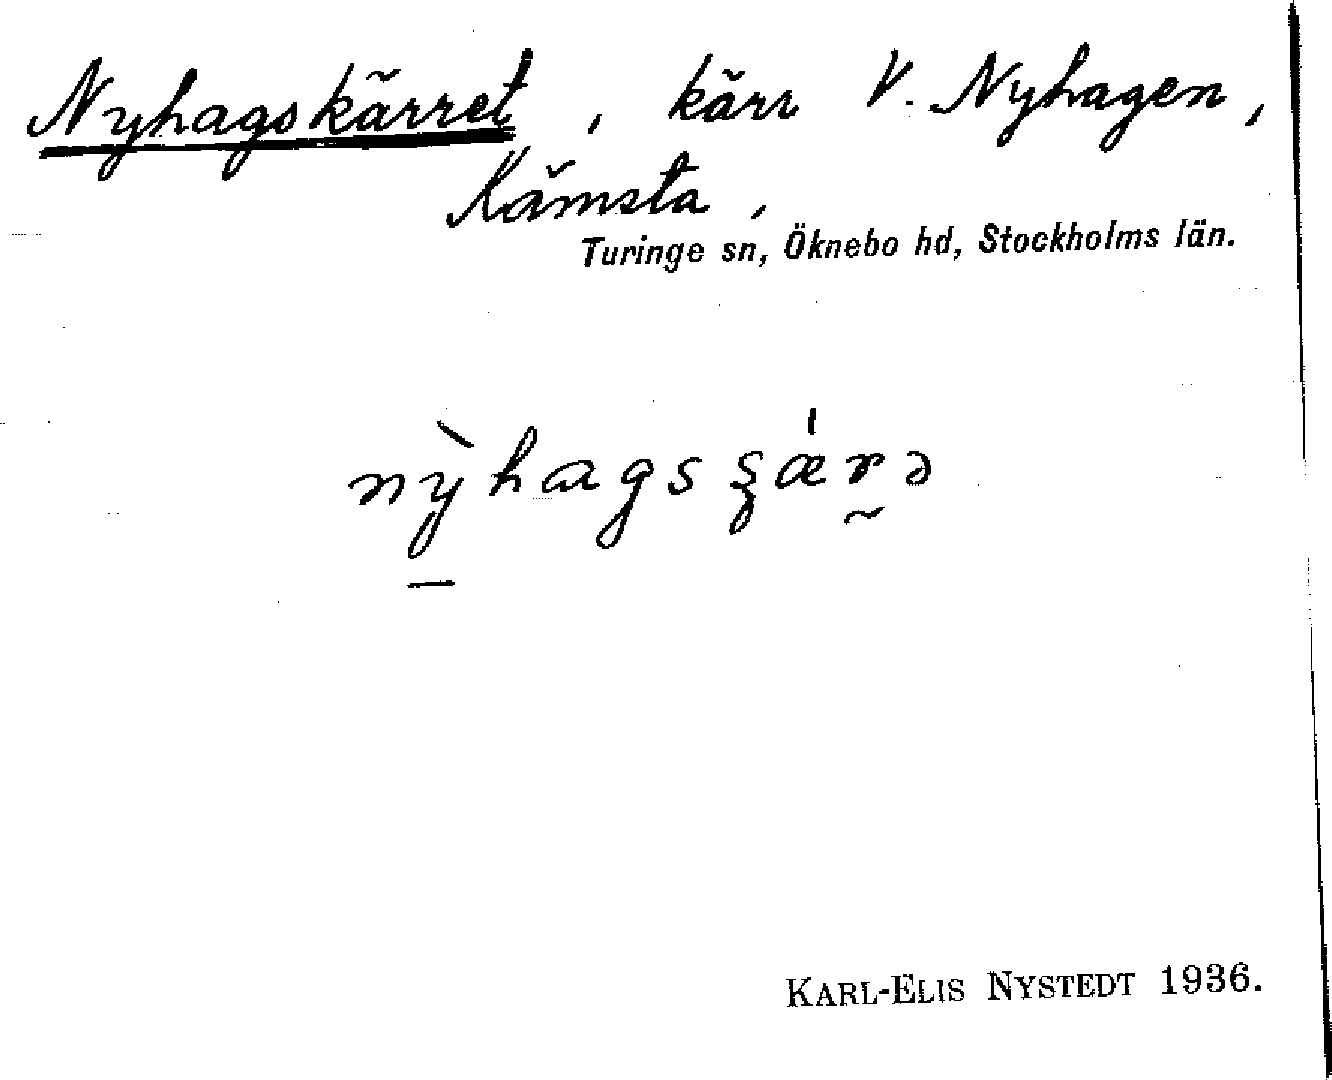 Nyhagskärret, kärr V. Nyhagen,
Kämsta,
Turinge sn, Öknebo hd, Stockholms län.
nỳhagsʂǽrə
KARL-ELIS NYSTEDT 1936.